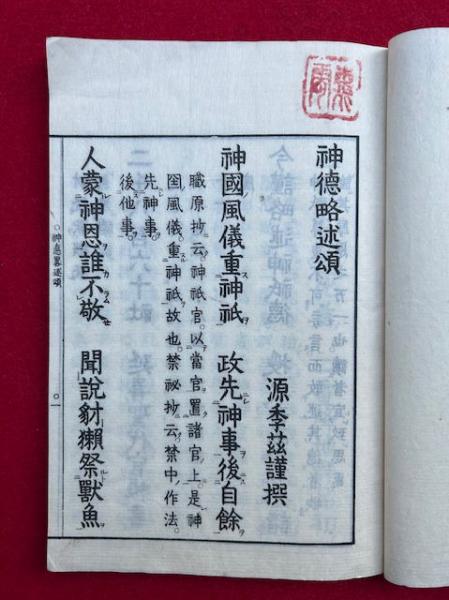 神德略述頌
源季茲謹撰
神國風儀重神祇 政先神事後自餘
職原抄云。神祇官。以當官置諸官上。是神
國風儀。重神祇故也。禁祕抄云。禁中作法。
先神事。後他事。
人蒙神恩誰不敬 聞說豺獺祭獸魚